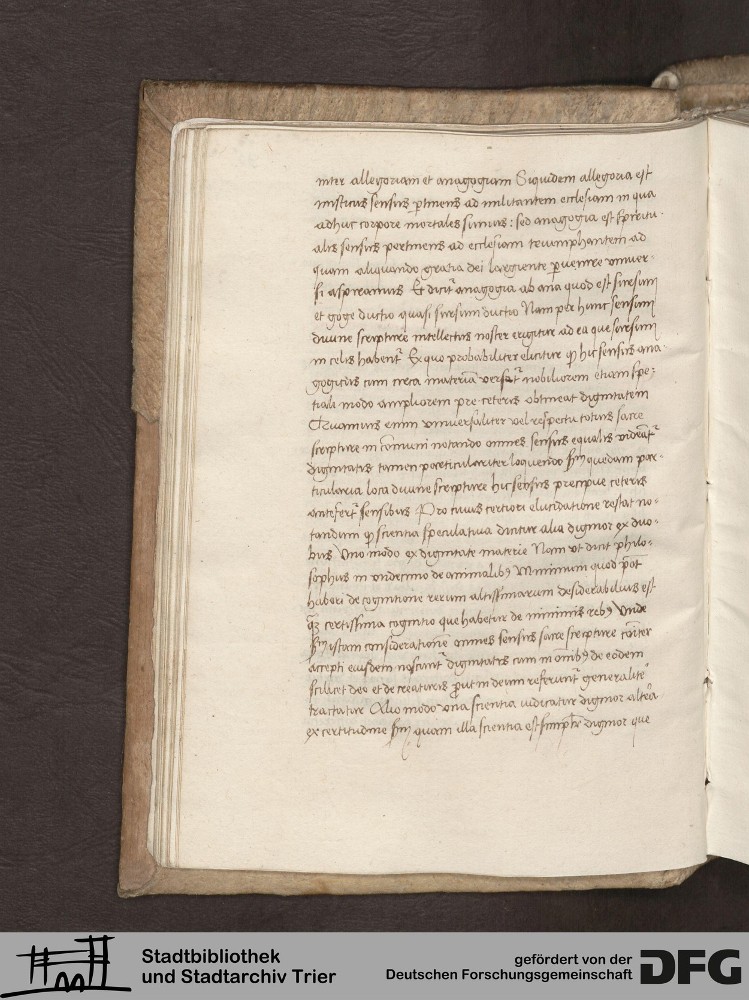 inter allegoriam et anagogiam Siquidem allegoria est
misticus sensus ꝑtinens ad militantem ecclesiam in qua
adhuc corpore mortales sumus: sed anagogia est spiritu-
alis sensus pertinens ad ecclesiam triumphantem ad
quam aliquando gratia dei largiente ꝑuenire vniuer-
si aspiramus Et dicit᷑ anagogia ab ana quod est sursum
et goge ductio quasi sursum ductio Nam per hunc sensum
diuine scripture intellectus noster erigitur ad ea que sursum
in celis habent᷑ Ex quo probabiliter elicitur ꝙ hic sensus ana-
gogicus cum circa materiā versat᷑ nobiliorem etiam spe-
tiali modo ampliorem pre ceteris obtineat dignitatem
Quamuis enim vniuersaliter vel respectu totius sacre
scripture in cōmuni notando omnes sensus equalis videāt᷑
dignitatis tamen particulariter loquendo scḍm quedam par-
ticularia loca diuine scripture hic sensus precipue ceteris
antefert᷑ sensibus Pro cuius certiori elucidatione restat no-
tandum ꝙ scientia speculatiua dicitur alia dignior ex duo-
bus Vno modo ex dignitate materie Nam vt dicit philo-
sophus in vndecimo de animalibꝰ Minimum quod pōt
haberi de cognitione rerum altissimarum desiderabilius est
qꝫ certissima cognitio que habetur de minimis rebꝰ Vnde
scḍm istam consideratione omnes sensus sacre scripture cōiter
accepti eiusdem noscunt᷑ dignitatis cum in oīmbꝰ de eodem
scilicet deo et de creaturis ꝓut in deum referunt᷑ generalitẽ
tractatur Alio modo vna scientia iudicatur dignior altera
ex certitudine scḍm quam illa scientia est simplr̄ dignior que
Stadtbibliothek
und Stadtarchiv Trier
gefördert von der
Deutschen Forschungsgemeinschaft
DFG